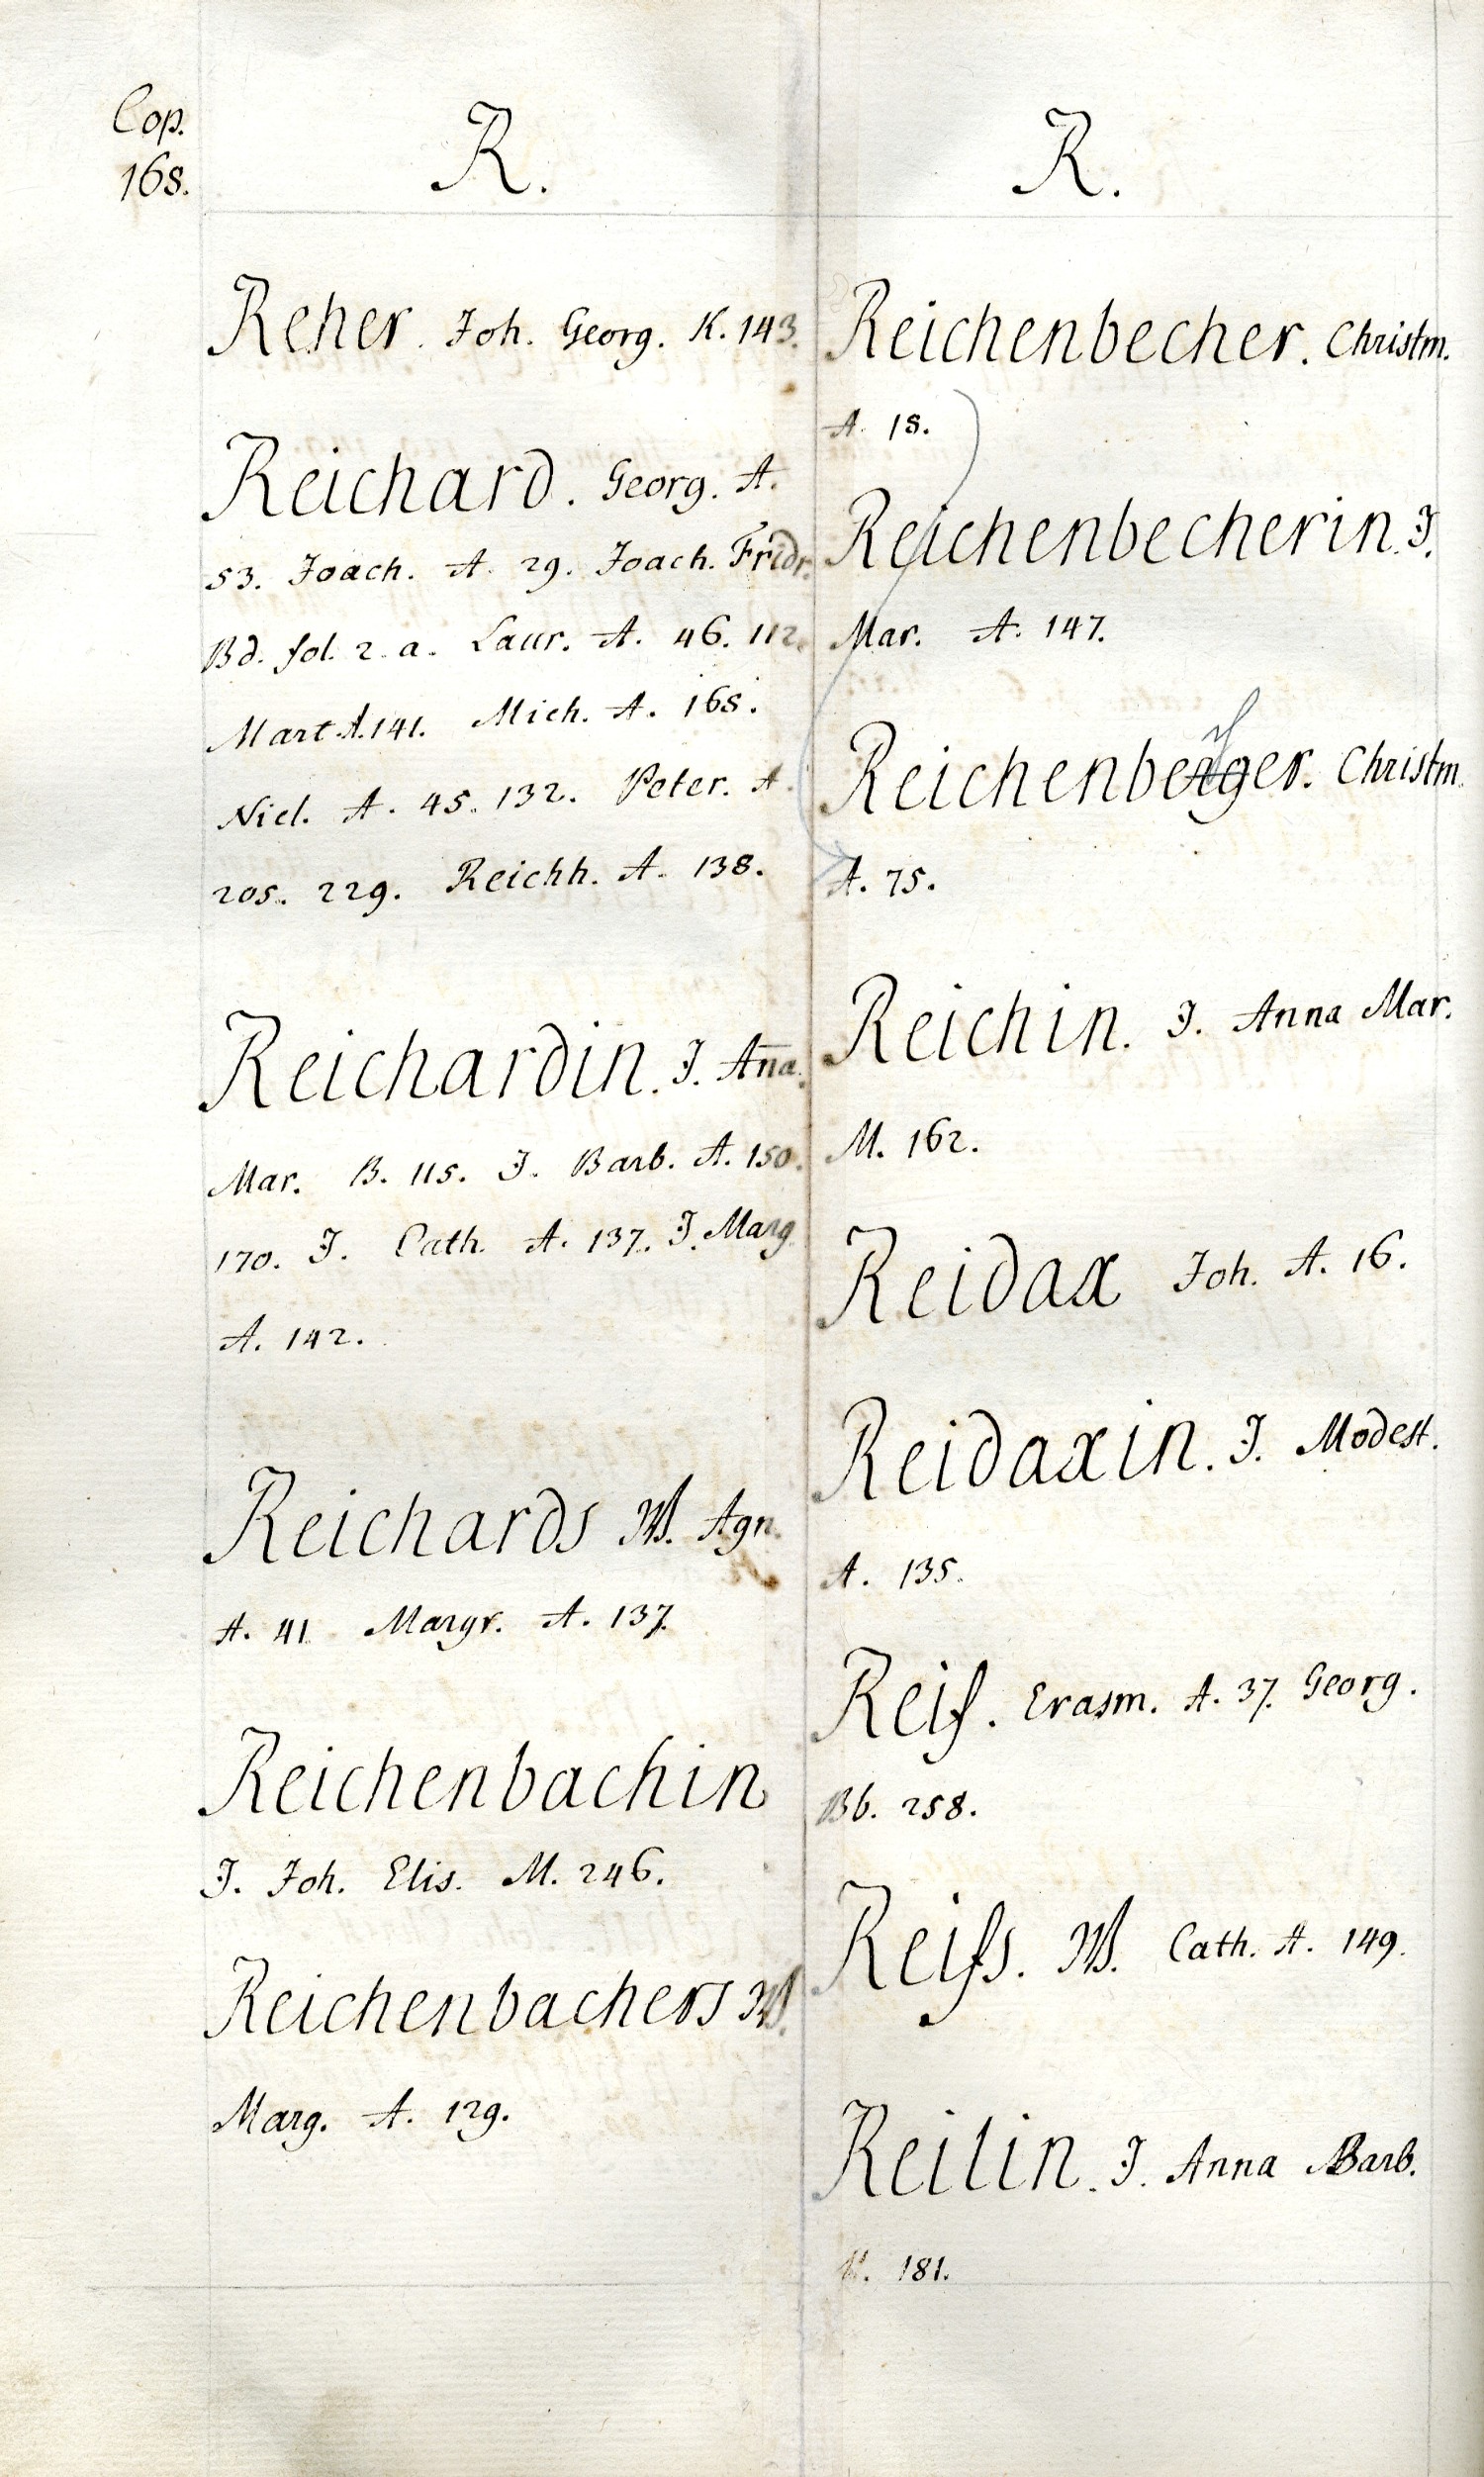 Cop.
168.
R.
Reher. Joh. Georg. K. 143.
Reichard. Georg. A.
53. Joach. A. 29. Joach. Fridr.
Bd. fol. 2. a. Laur. A. 46. 112.
Mart. A. 141. Mich. A. 168.
Nicl. A. 45. 132. Peter. A.
205. 229. Reichh. A. 138.
Reichardin. J. Aña.
Mar. B. 115. J. Barb. A. 150.
170. J. Cath. A. 137. J. Marg.
A. 142.
Reichards W. Agn.
A. 41. Margr. A. 137.
Reichenbachin
J. Joh. Elis. M. 246.
Reichenbachers W.
Marg. A. 129.
R.
Reichenbecher. Christm.
A. 18.
Reichenbecherin. J.
Mar. A. 147.
Reichenberger. Christm.
A. 75.
Reichin. J. Anna Mar.
M. 162.
Reidax Joh. A. 16.
Reidaxin. J. Modest.
A. 135.
Reif. Erasm. A. 37. Georg.
Bb. 258.
Reifs. W. Cath. A. 149.
Reilin. J. Anna Barb.
181.